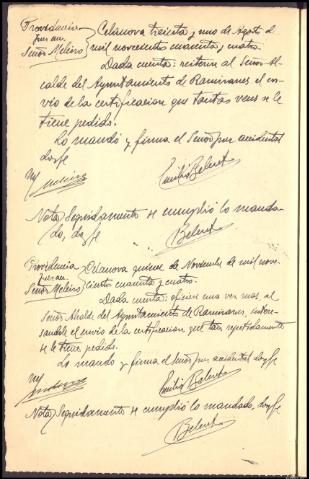 Providencia
Juez ac.
Señor Meleiro
Celanova treinta y uno de Agosto de
mil novecientos cuarenta y cuatro.
Dada cuenta: reitérese al Señor Al-
calde del Ayuntamiento de Ramiranes el en-
vio de la certificacion que tantas veces se le
tiene pedido.
Lo mandó y firma el Señor Juez accidental
doy fe
M/ Meleiro
Emilio Belert
Nota. Seguidamente se cumplió lo manda-
do, doy fe
Belert
Providencia
Juez ac.
Señor Meleiro
Celanova quince de Noviembre de mil nove-
cientos cuarenta y cuatro.
Dada cuenta: oficiese una vez mas, al
Señor Alcalde del Ayuntamiento de Ramiranes, intere-
sandole el envio de la certificacion que tan repetidamente
se le tiene pedido.
Lo mandó y firma el Señor Juez accidental doy fe
M/
Emilio Belert
Nota. Seguidamente se cumplió lo mandado, doy fe
Belert